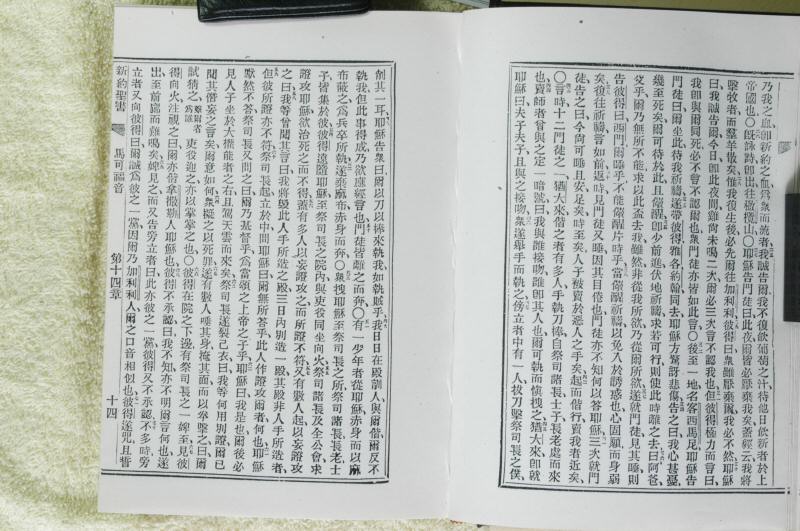 乃我之血卽新約之血爲衆而流者我誠告爾我不復飲葡萄之汁待他日飲新者於上
帝國也〇旣詠詩卽出往橄欖山〇耶穌告門徒曰此夜爾皆必厭棄我矣蓋經云我將
擊牧者而羣羊散矣惟我復生後必先爾往加利利彼得曰衆雖厭棄爾我必不然耶穌
曰我誠告爾今日卽此夜間雞尚未鳴二次爾必三次言不認我也但彼得極力而言曰
我卽與爾同死必不會不認爾也衆門徒亦皆如此言〇後至一地名客西馬尼耶穌告
門徒曰爾坐此待我祈禱遂帶彼得雅各約翰同去耶穌方驚訝悲傷告之曰我心甚憂
幾至死矣爾可待於此且儆醒卽少前進伏地祈禱求若可行則使此時疏之去曰阿爸
父乎爾乃無所不能求以此盃去我雖然非從我所欲乃從爾所欲遂就門徒見其睡則
告彼得曰西門爾睡乎不能儆醒片時乎當儆醒祈禱以免入於誘惑也心固願而身弱
矣復往祈禱言如前返時見門徒又睡因其目倦也門徒亦不知何以答耶穌三次就門
徒告之曰今尚可睡且安足矣時至矣人子被賣於惡人之手矣起而偕行賣我者近矣
〇言時十二門徒之一猶大來偕之者有多人手執刀棒自祭司諸長士子長老處而來
也賣師者曾與之定一暗號曰我與誰接吻誰卽其人也爾可執而愼拽之猶大來卽就
耶穌曰夫子夫子且與之接吻衆遂舉手而執之傍立者中有一人拔刀擊祭司長之僕
削其一耳耶穌告衆曰爾以刀以棒來執我如執賊乎我日日在殿訓人與爾偕爾反不
執我但此事得成乃欲應經言也門徒皆離之而奔〇有一少年者從耶穌赤身而以麻
布蔽之爲兵卒所執遂棄麻布赤身而奔〇衆拽耶穌至祭司長之所祭司諸長長老士
子皆集於彼彼得遠隨耶穌至祭司長之院內與吏役同坐向火祭司諸長及全公會求
證攻耶穌欲治死之而不得蓋有多人以妄證攻之而所證不符又有數人起以妄證攻
之曰我等曾聞其言曰我將毀此人手所造之殿三日內別造一殿其殿非人手所造者
但彼所證亦不符祭司長起立於中間耶穌曰爾無所答乎此人作證攻爾者何也耶穌
默然不答祭司長又問之曰爾乃基督乎爲當頌之上帝之子乎耶穌曰我是也爾後必
見人子坐於大權能者之右且駕天雲而來矣祭司長遂裂己衣曰我等何用別證爾已
聞其僭妄之言矣爾意如何衆擬之以死罪遂有數人唾其身掩其面而以拳擊之曰爾
試猜之爲誰吏役迎之亦以掌掌之也〇彼得在院之下邊有祭司長之一婢至見彼
得向火注視之曰爾亦偕拿撒勒人耶穌也彼得不承認曰我不知亦不明爾言何也遂
出至前廊而雞鳴矣婢見之而又告旁立者曰此亦彼之一黨彼得又不承認不多時旁
立者又向彼得曰爾誠爲彼之一黨因爾乃加利利人爾之口音相似也彼得遂咒且誓
新約聖書 馬可福音 第十四章 十四